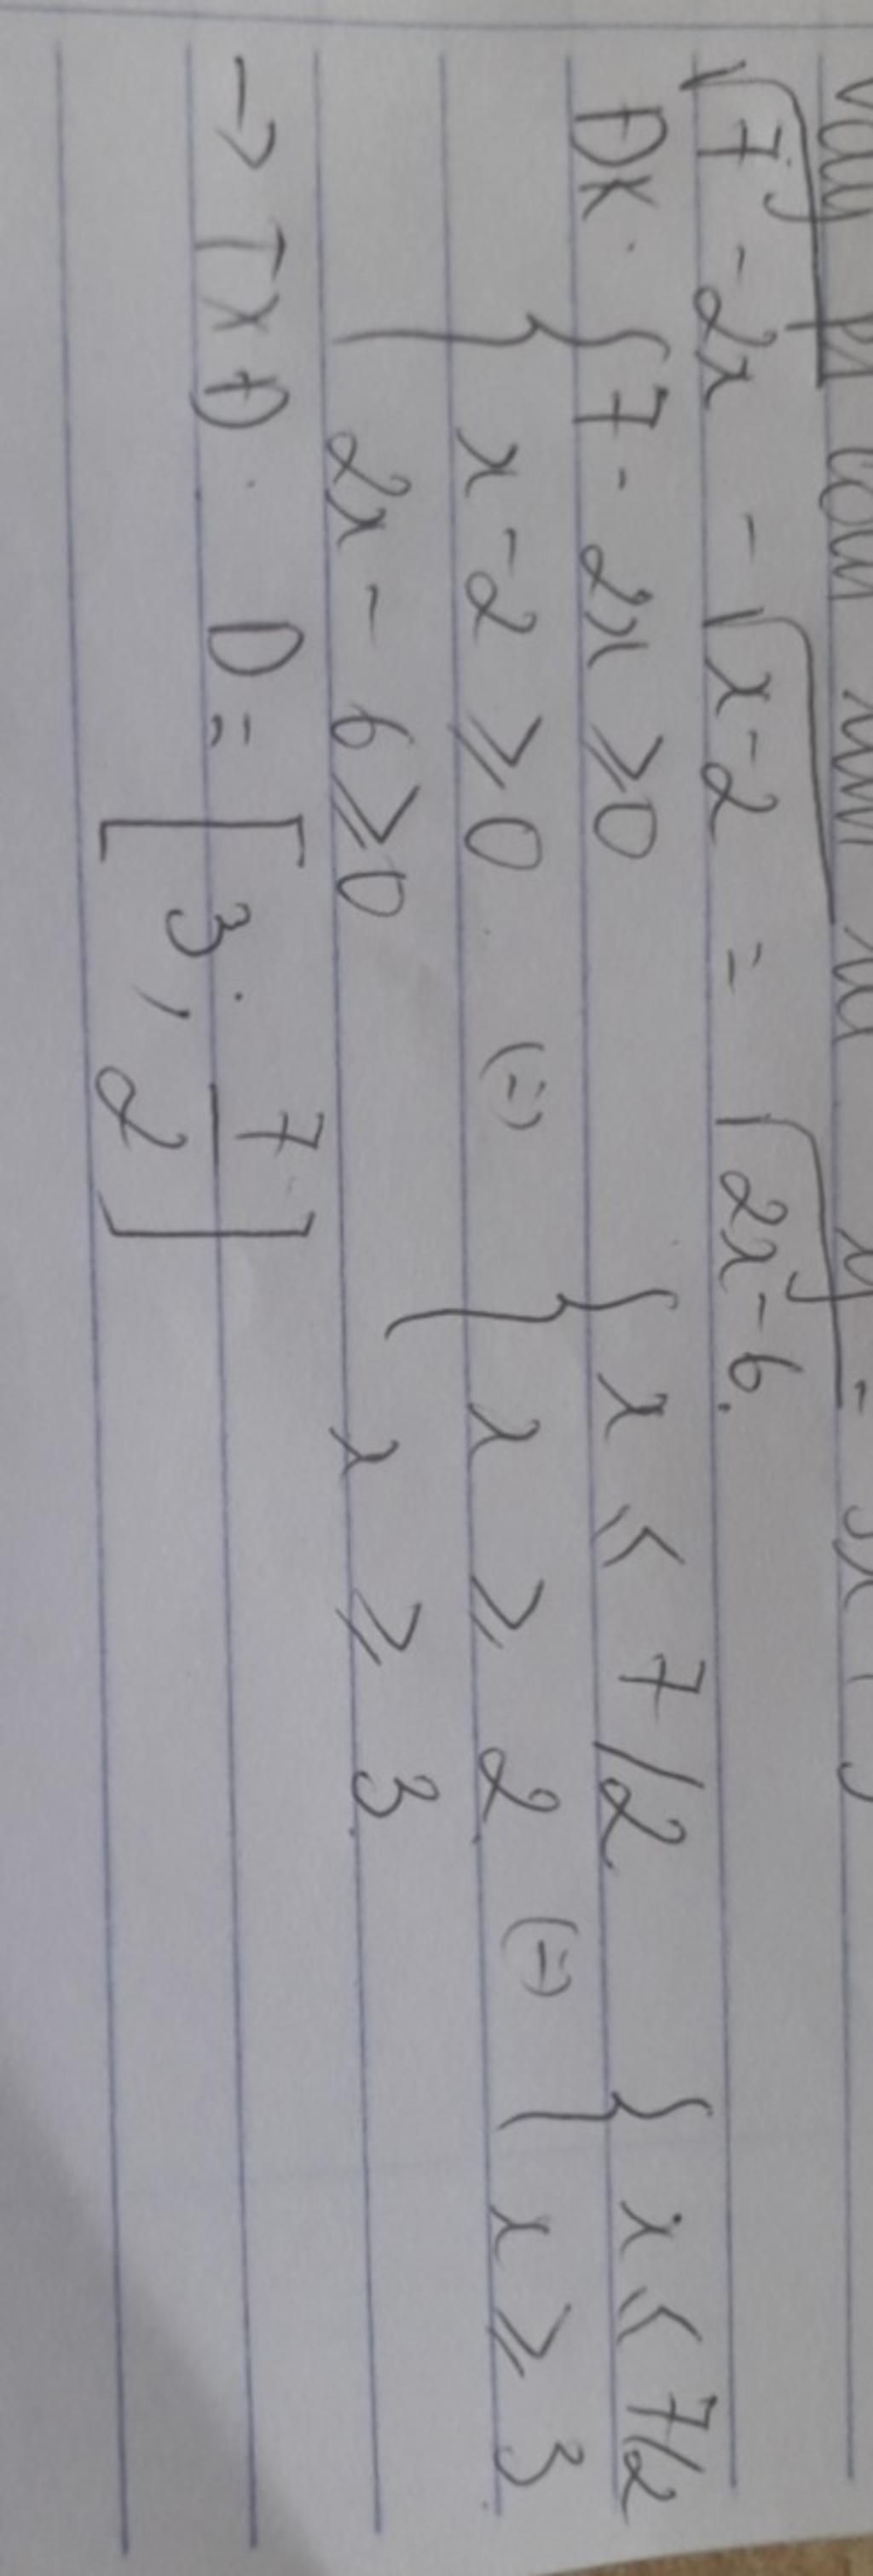 √7 - 2x - √x-2 = √2x-6.
ĐK. { 7 - 2x ⩾ 0 x - 2 ⩾ 0 2x - 6 ⩾ 0 (=) { x ⩽ 7/2 x ⩾ 2 x ⩾ 3 (=) { x ⩽ 7/2 x ⩾ 3
→ TXĐ. D = [3; 7/2]